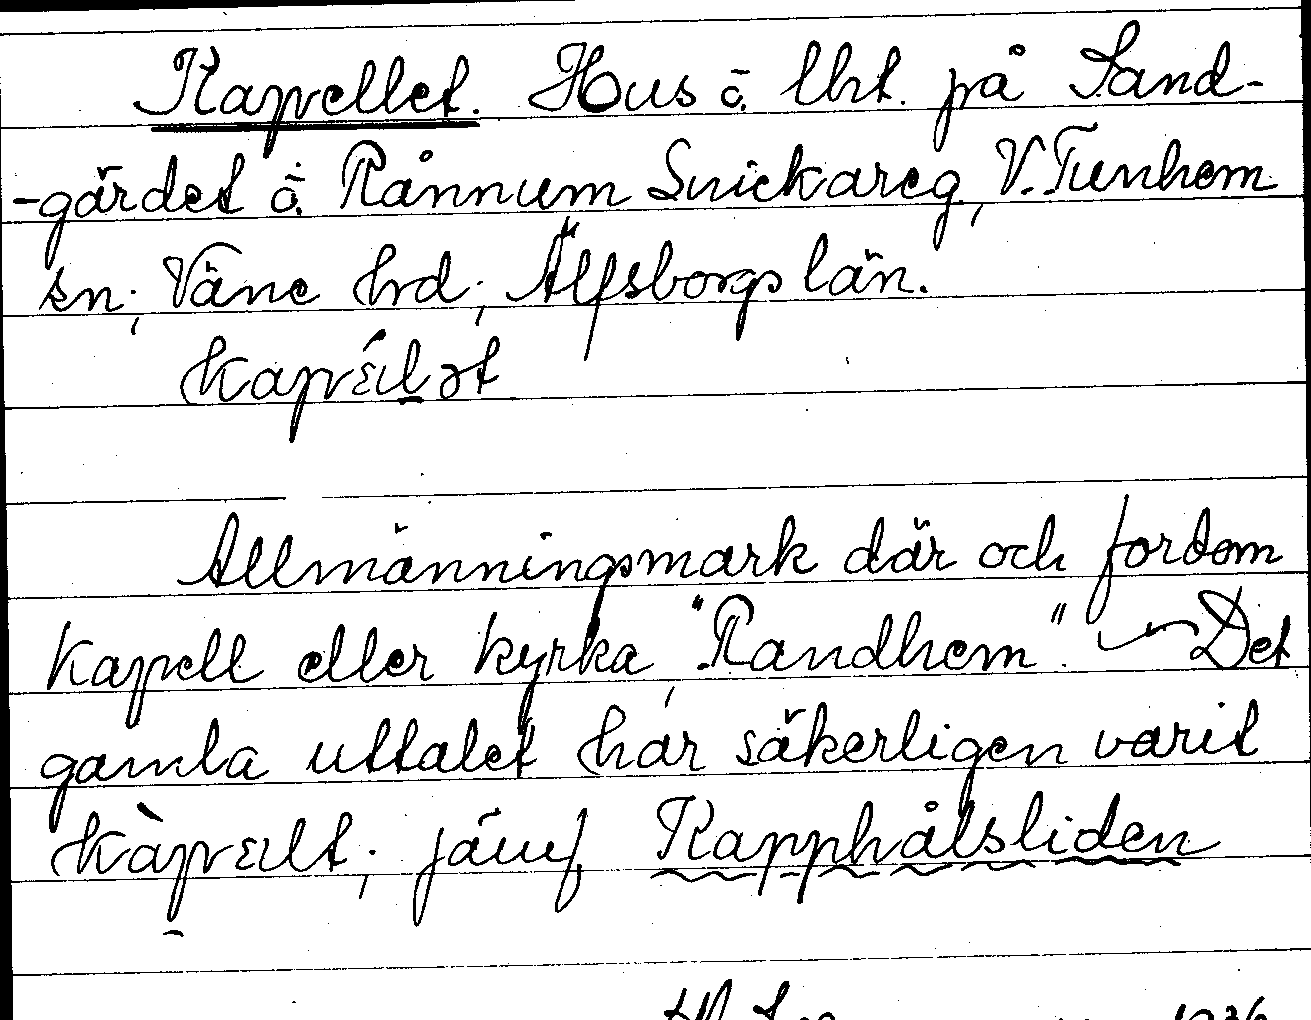 Kapellet. Hus o. lht. på Sand-
-gärdet o. Rånnum Snickareg., V. Tunhem
sn., Väne hrd., Älfsborgs län.
kapɛ́l̠ət
Allmänningsmark där och fordom
kapell eller kyrka, "Randhem". — Det
gamla uttalet har säkerligen varit
kàpɛlt.; jämf. Kapphålsliden
1936